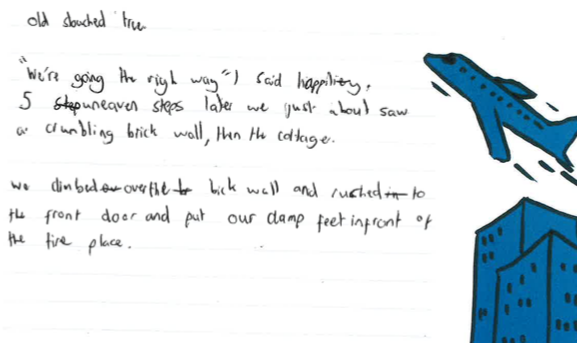 old slouched tree
"We're going the righ way" I said happily,
5 uneaven steps later we just about saw
a crumbling brick wall, then the cottage.
we climbed over the bick wall and rushed to
the front door and put our damp feet infront of
the fire place.